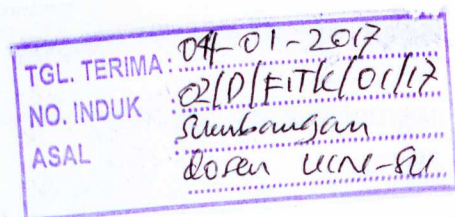 TGL. TERIMA : 04-01-2017
NO. INDUK : 02/D/FITK/01/17
ASAL Sumbangan
dosen UIN-SU